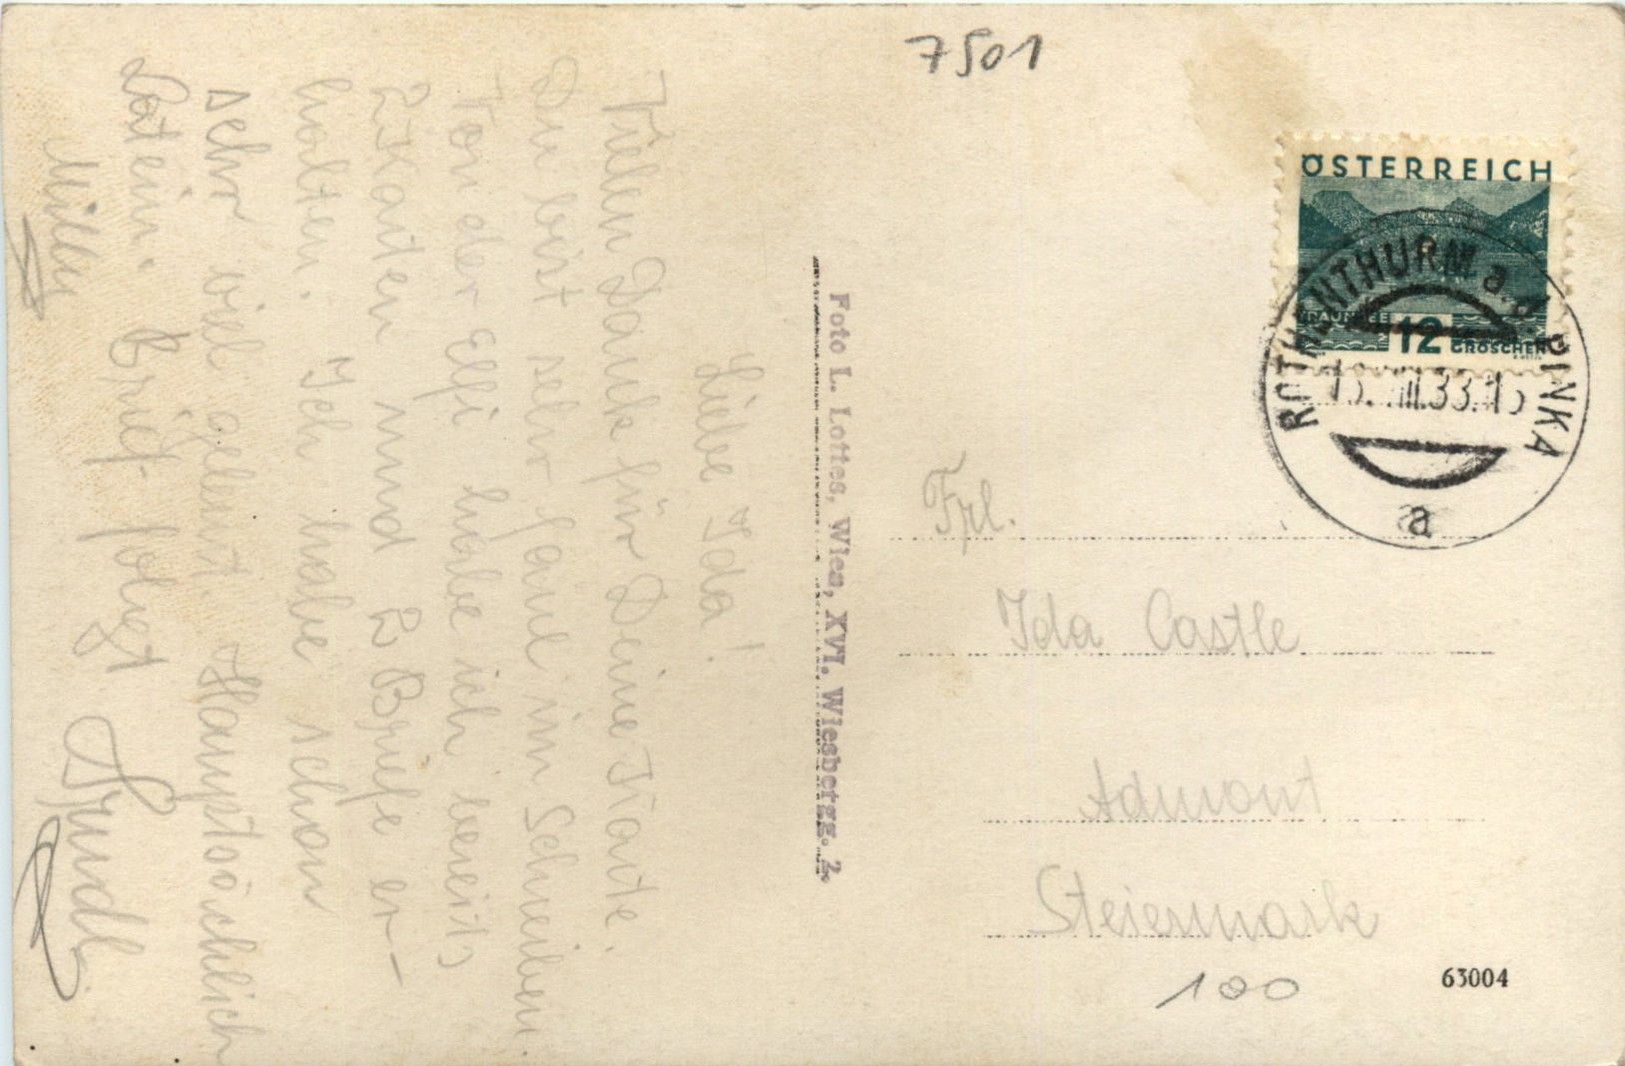 7501
ÖSTERREICH
TRAUNSEE
12
GROSCHEN
ROTHENTHURM a. d. PINKA
33.15
a
Liebe Ida!
Vielen Dank für Deine Karte.
Du bist sehr faul im Schreiben.
Von der Elfi habe ich bereits
2 Karten und 2 Briefe er-
halten. Ich habe schon
sehr viel gelernt. Hauptsächlich
Latein. Brief folgt.
Milly
Foto L. Lottes, Wien, XVI. Wiesbergg. 2.
Frl.
Ida Castle
Admont
Steiermark
100
63004